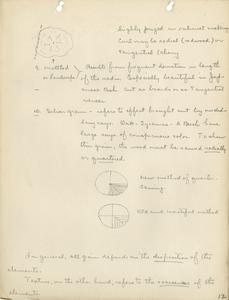 highly prized in cabinet making
Curls may be radial (redwood) or
tangential (cherry
9. mottled - Results from frequent deviation in length
of the radius. Especially beautiful in Jap-
anese Ash but as boards are on tangential
10. Silver grain - refers to effect brought out by medul-
lary rays. Oak - Sycamore - & Beech have
large rays of conspicuous color. To show
this grain, the wood must be sawed radially
or quartered.
New method of quarter-
sawing
Old and wasteful method
In general, all grain depends on the disposition of the
elements.
Texture, on the other hand, refers to the of the
elements